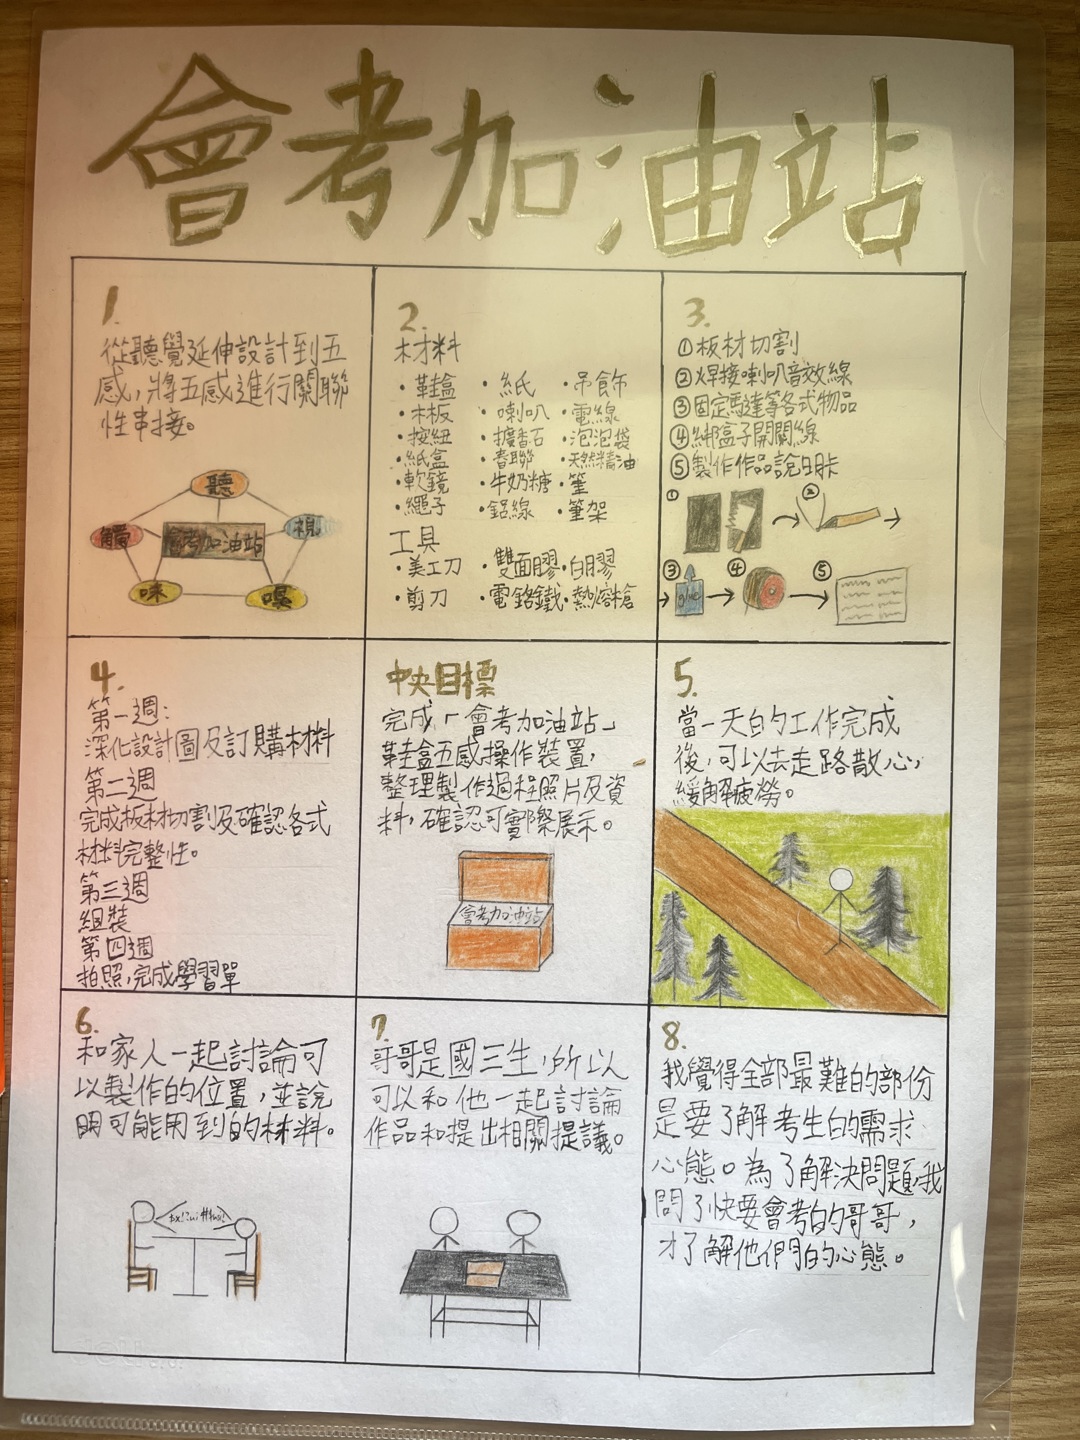 會考加油站
1.
從聽覺延伸設計到五
感，將五感進行關聯
性串接。
聽
觸
視
會考加油站
味
嗅
2.
材料
・鞋盒 ・紙 ・吊飾
・木板 ・喇叭 ・電線
・按鈕 ・擴香石 ・泡泡袋
・紙盒 ・春聯 ・天然精油
・軟鏡 ・牛奶糖 ・筆
・繩子 ・鋁線 ・筆架
工具
・美工刀 ・雙面膠 ・白膠
・剪刀 ・電鉻鐵 ・熱溶槍
3.
①板材切割
②焊接喇叭音效線
③固定馬達等各式物品
④綁盒子開關線
⑤製作作品說明卡
① ②
③ glue ④ ⑤
4.
第一週：
深化設計圖及訂購材料
第二週
完成板材切割及確認各式
材料完整性。
第三週
組裝
第四週
拍照，完成學習單
中央目標
完成「會考加油站」
鞋盒五感操作裝置，
整理製作過程照片及資
料，確認可實際展示。
會考加油站
5.
當一天的工作完成
後，可以去走路散心，
緩解疲勞。
6.
和家人一起討論可
以製作的位置，並說
明可能用到的材料。
7.
哥哥是國三生，所以
可以和他一起討論
作品和提出相關提議。
8.
我覺得全部最難的部份
是要了解考生的需求
心態。為了解決問題，我
問了快要會考的哥哥，
才了解他們的心態。